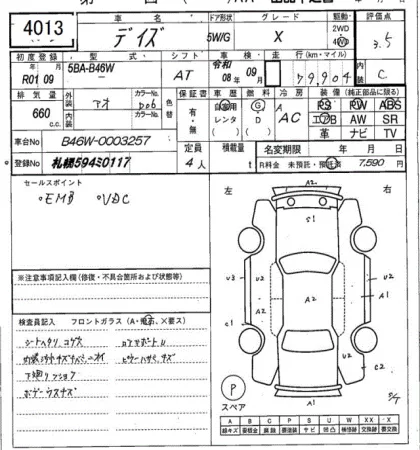 4013
車名
デイズ
ドア形状
5W/G
グレード
X
駆動
2WD
4WD
評価点
3.5
初度登録
R01 09
型式
5BA-B46W
シフト
AT
車検
令和
08年 09月
走行(km・マイル)
79,904
内装
C
排気量
660
c.c.
外装
アオ
カラーNo.
色替
カラーNo.
保証書
有・無
車歴
自家用
レンタ
燃料
G
D
冷房
AC
装備(純正部品に限る)
PS PW ABS
エアB AW SR
革 ナビ TV
車台No
B46W-0003257
登録No
札幌594ミ0117
定員
4人
積載量
t
名変期限
年 月 日
R料金 未預託・預託済
7,590円
セールスポイント
・EMB ・VDC
左
右
A2
S1
U3
U2
A2
A2
U2
A1
C1
U2
C2
A1
※注意事項記入欄(修復・不具合箇所および状態等)
検査員記入
フロントガラス(A・飛石、×要ス)
シートヘタリ コゲ穴
下廻りサビ
ボデーウスキズ
P
スペア
A B C P S U W XX X
線キズ 要板金 腐蝕 要塗装 サビ 凹凸 補修跡 交換跡 要交換